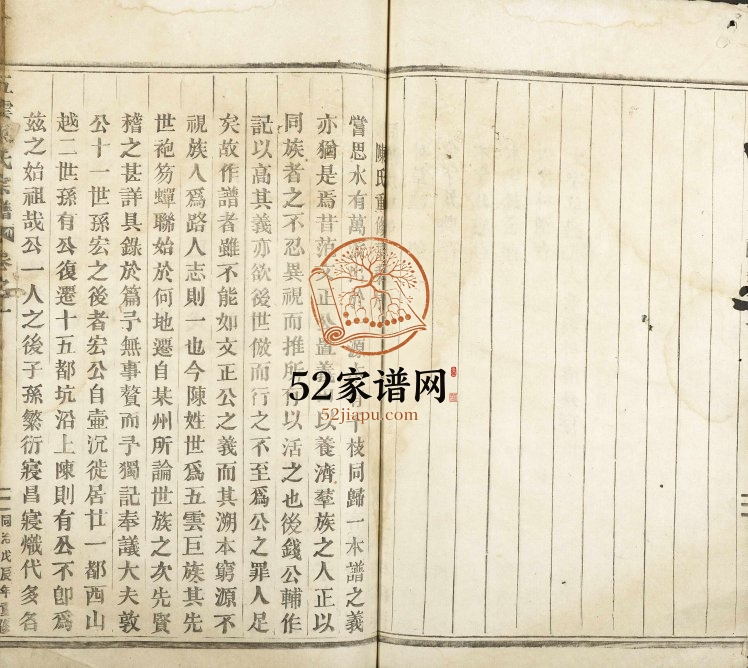 陳氏重修
嘗思水有萬 源 千枝同歸一本譜之義
亦猶是焉昔范文正公置義田以養濟羣族之人正以
同族者之不忍異視而推所有以活之也後錢公輔作
記以高其義亦欲後世倣而行之不至爲公之罪人足
矣故作譜者雖不能如文正公之義而其溯本窮源不
視族人爲路人志則一也今陳姓世爲五雲巨族其先
世袍笏蟬聯始於何地遷自某州所論世族之次先賢
稽之甚詳具錄於篇予無事贅而予獨記奉議大夫敦
公十一世孫宏之後者宏公自壼沉徙居廿一都西山
越二世孫有公復遷十五都坑沿上陳則有公不卽爲
兹之始祖哉公一人之後子孫繁衍寢昌寢熾代多名
五雲 氏宗譜 卷之一
同治戊辰年重修
52家谱网
52jiapu.com